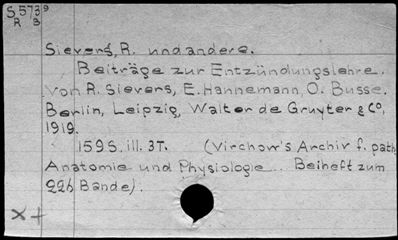 S 573⁹
R B
Sievers, R. und andere.
Beiträge zur Entzündungslehre.
von R. Sievers, E. Hannemann, O. Busse.
Berlin, Leipzig, Walter de Gruyter & Co,
1919.
159 S. ill. 3 T. (Virchow's Archiv f. path.
Anatomie und Physiologie.. Beiheft zum
226 Bande).
X +